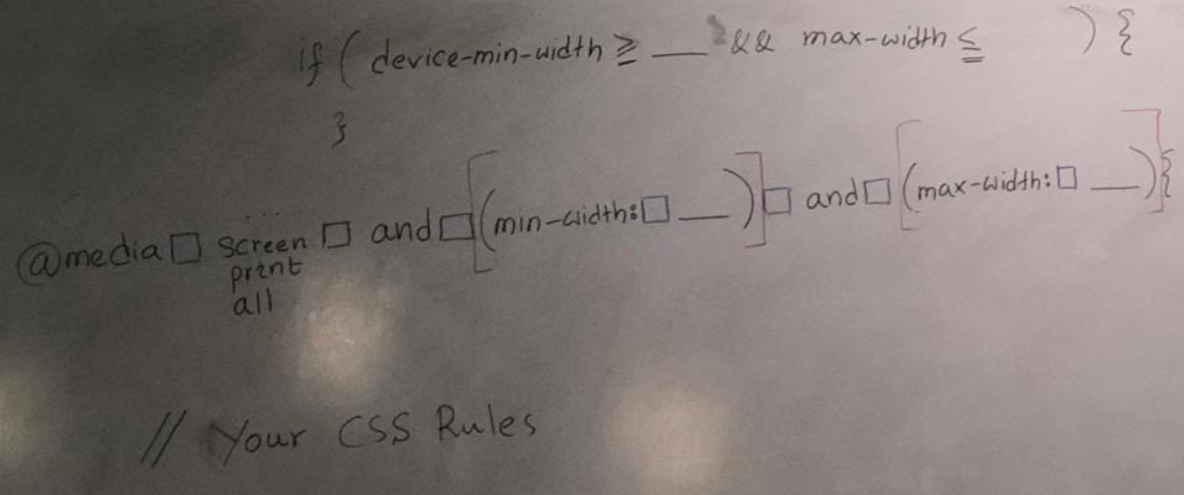 if ( device-min-width ≥ __ && max-width ≤ ) {
}
@media □ screen □ and □ [(min-width:□ __ )] □ and □ [(max-width:□ __ )]{
print
all
// Your CSS Rules